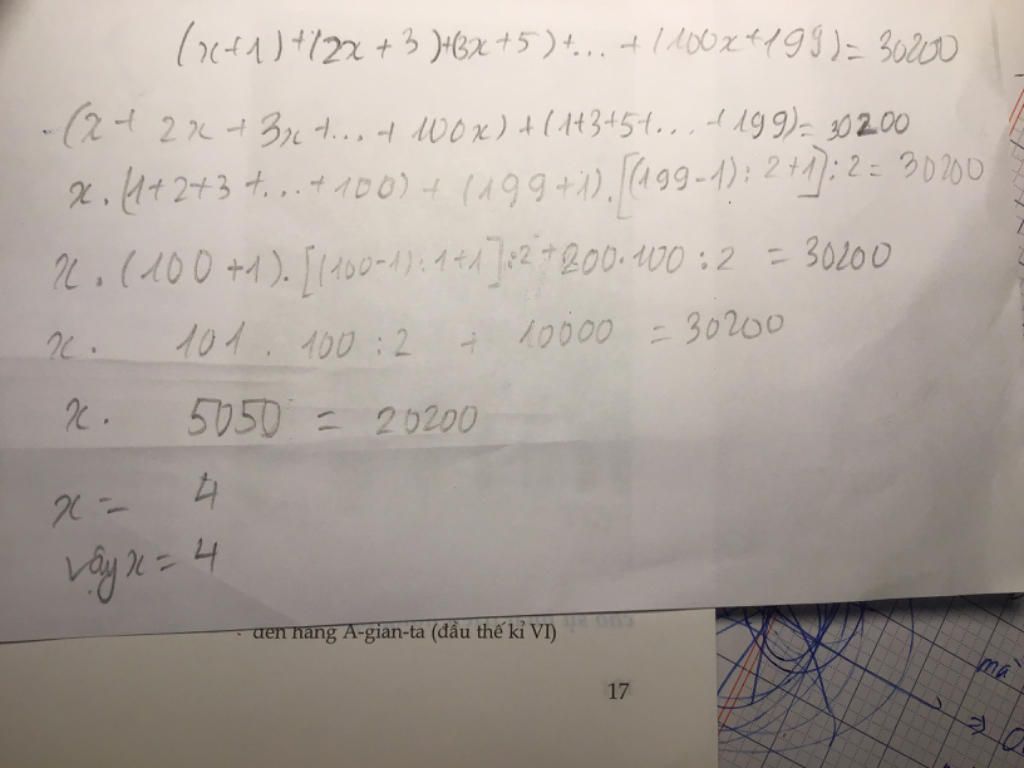 (x+1)+(2x+3)+(3x+5)+...+(100x+199)=30200
(x+2x+3x+...+100x)+(1+3+5+...+199)=30200
x.(1+2+3+...+100)+(199+1).[(199-1):2+1]:2=30200
x.(100+1).[(100-1):1+1]:2+200.100:2=30200
x. 101.100:2 + 10000 = 30200
x. 5050 = 20200
x= 4
vậy x=4
đến hang A-gian-ta (đầu thế kỉ VI)
17
mà
⇒